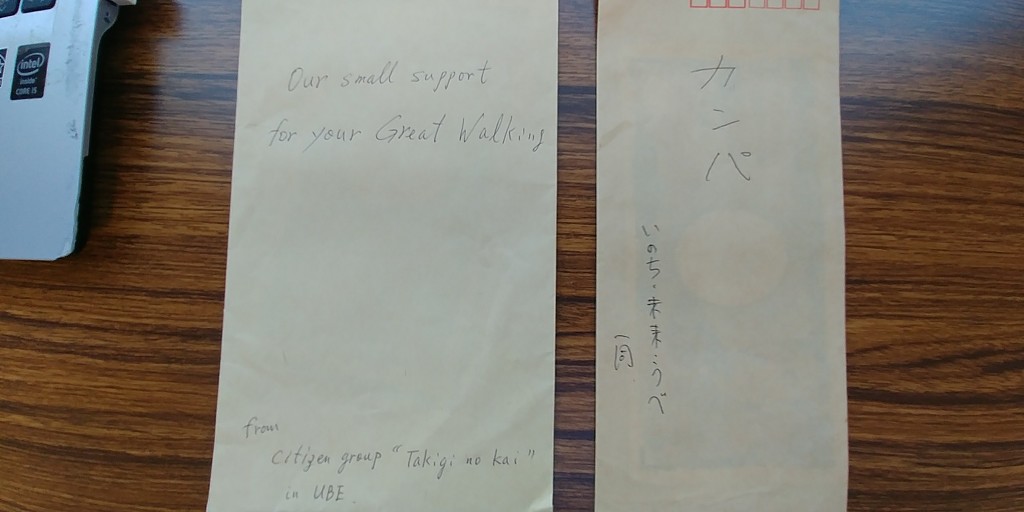 intel
inside
CORE i5
Our small support
for your Great Walking
from
citizen group "Takigi no kai"
in UBE.
カンパ
いのち・未来うべ
一同